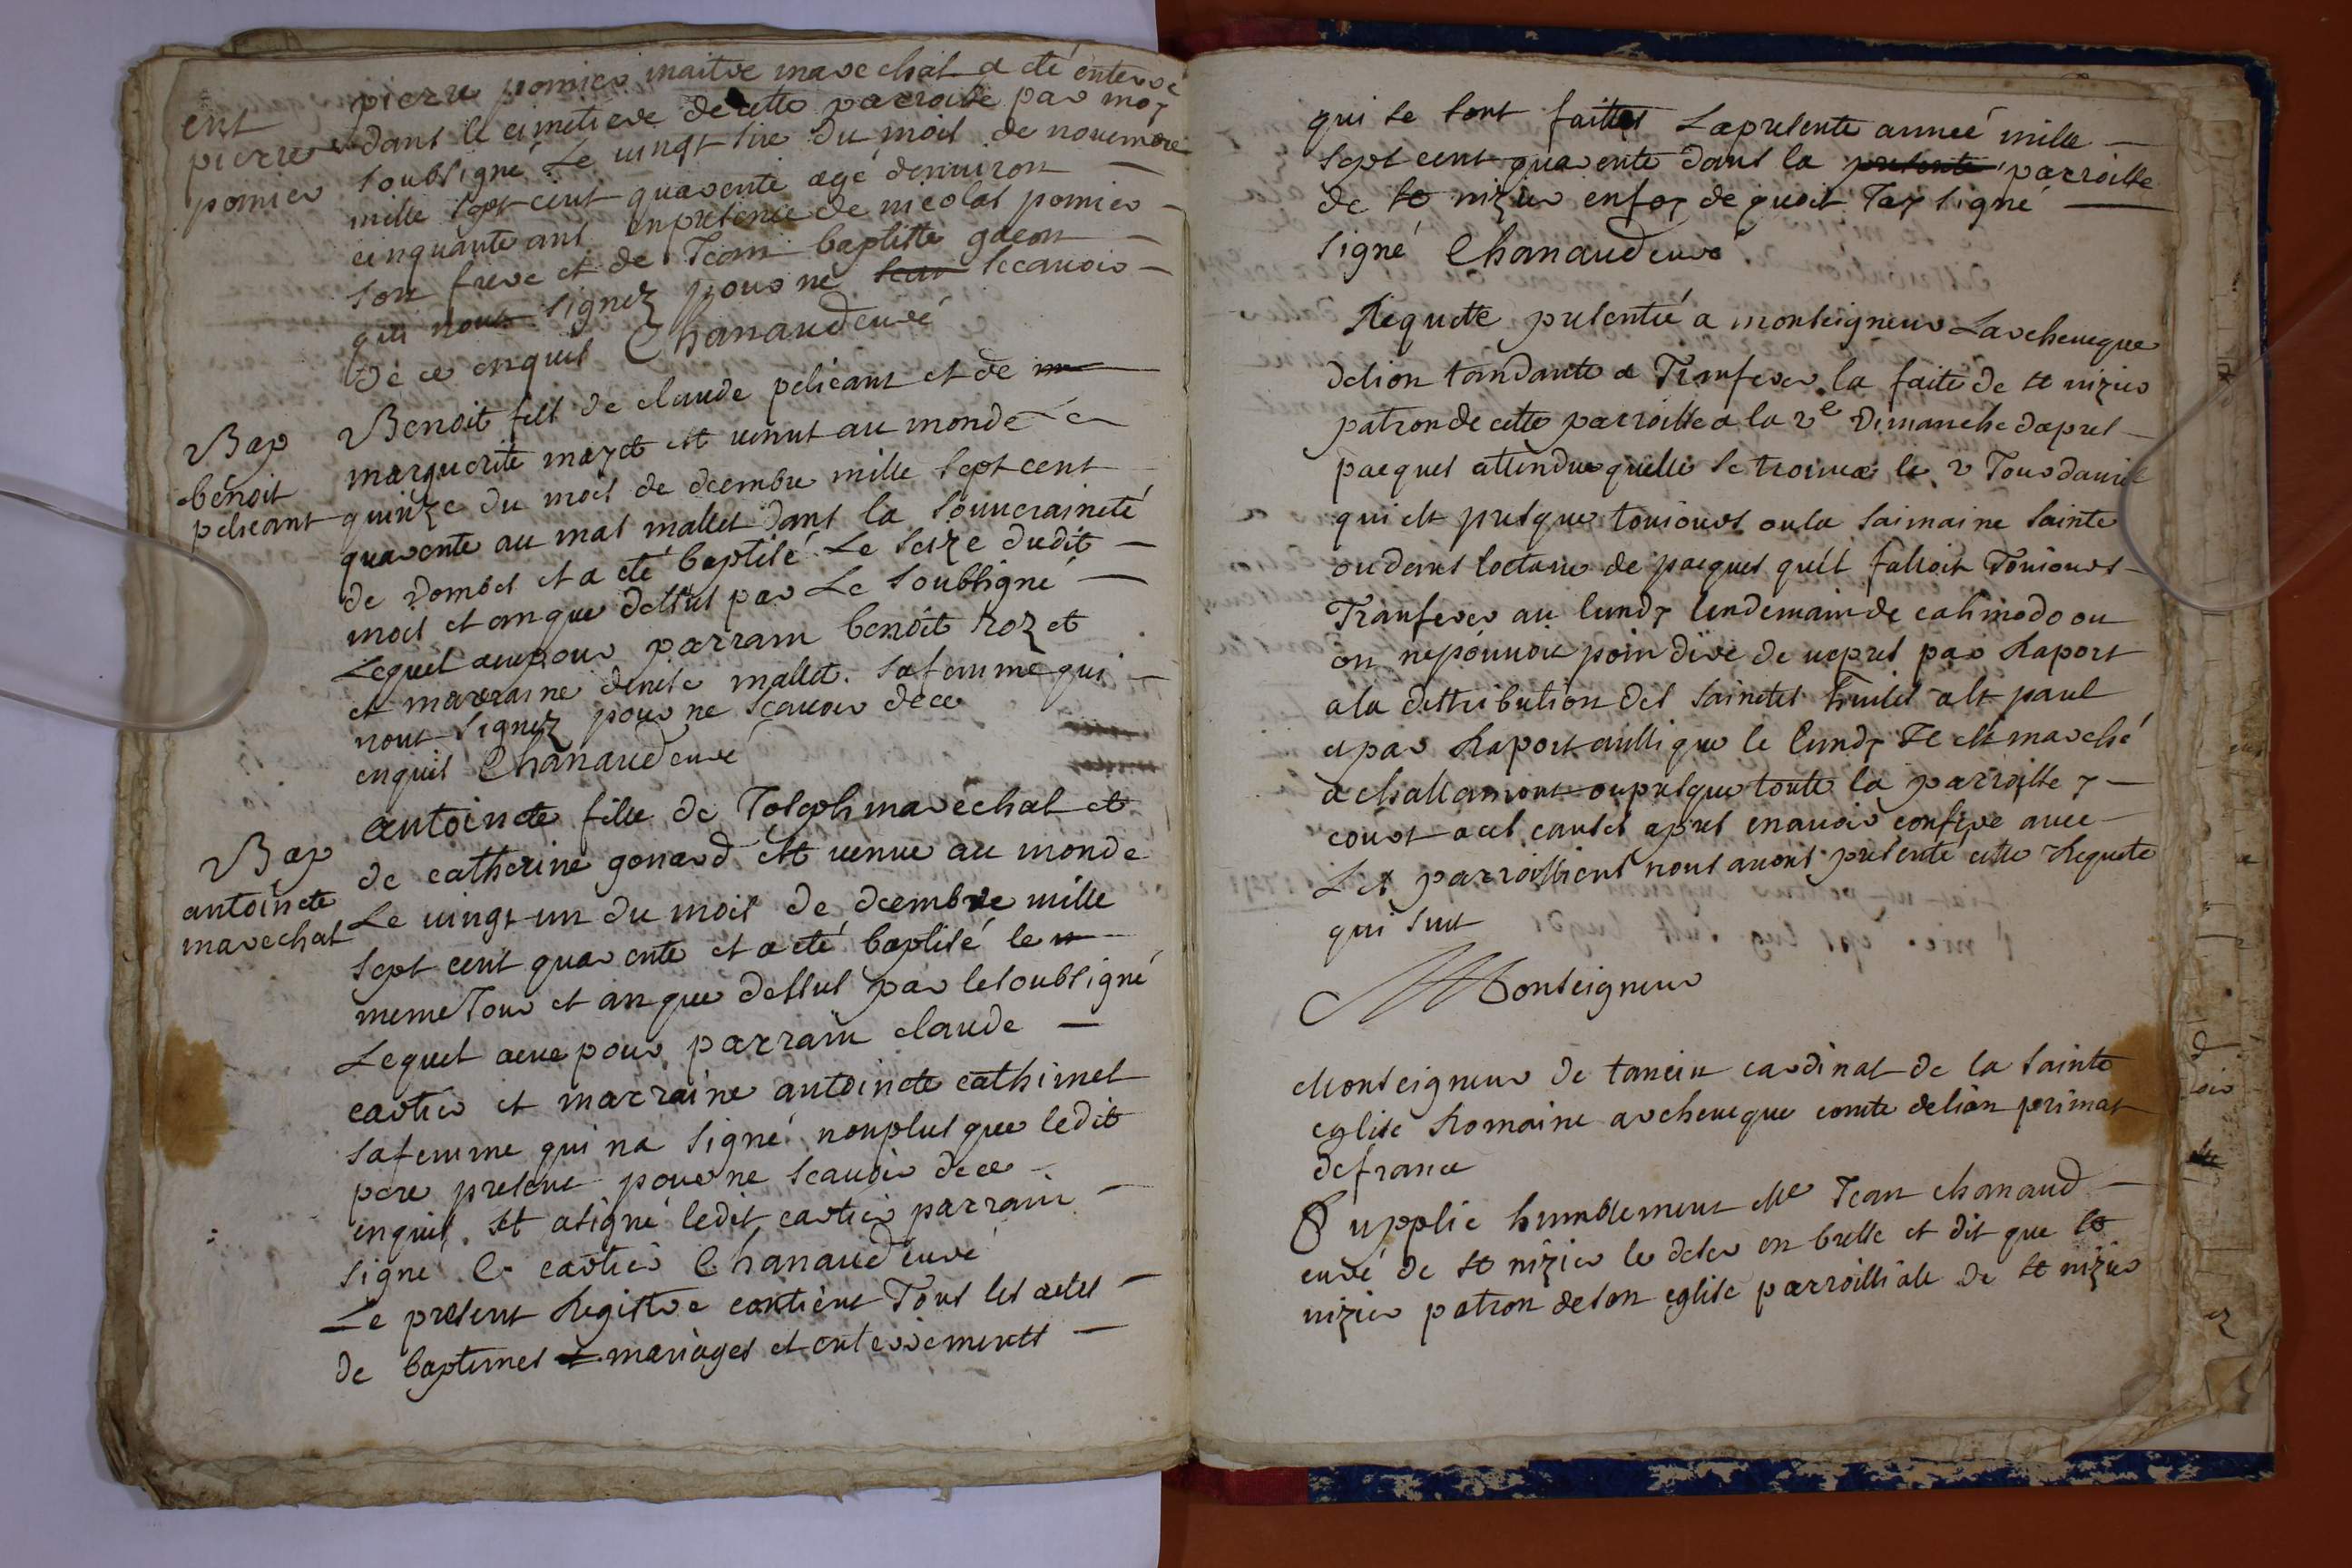 pierre pomier maitre marechal a eté enterré
ent
pierre
pomier
dans le cimetiere de cette parroisse par moy
soubsigné Le vingt sixe du mois de novembre
mille sept cent quarente agé denviron
cinquante ans enpresence de nicolas pomier
son frere et de Jean baptiste gacon
qui nont signez pour ne scavoir
de ce enquis Chanaud curé
Bap
benoit
pelicant
Benoit fils de claude pelicant et de
marguerite mazet est venut au monde le
quinze du mois de decembre mille sept cent
quarente au mas mallet dans la souveraineté
de dombes et a eté baptisé Le seize dudit
mois et an que dessus par Le soubsigné
Lequel aeu pour parrain benoit roz et
et marraine denise mallet sa femme qui
nont signez pour ne scavoir dece
enquis Chanaud curé
Bap
antoinete
marechal
antoinete fille de Joseph marechal et
de catherine gonard est venue au monde
Le vingt un du mois de decembre mille
sept cent quarente et a eté baptisé le
meme Jour et an que dessus par le soubsigné
Lequel aeue pour parrain claude
cartier et marraine antoinete cathimel
sa femme qui na signé nonplus que ledit
pere present pour ne scavoir de ce
enquis et asigné ledit cartier parrain
signé C cartier Chanaud curé
Le present Registre contient Tous les actes
de baptemes mariages et enterrements
qui se sont faittes Lapresente anneé mille
sept cent quarente dans la presente parroisse
de st nizier enfoy de quoit Jay signé
signé Chanaud curé
Requete presenteé a monseigneur Larcheveque
delion tandante a Tranferer la faite de st nizier
patron de cette parroisse a la 2e Dimanche dapres
pacques attendue quelle se trouve le 2 Jour davril
qui est presque toujours oula saimaine sainte
oudans loctave de pacques quil falloit Toujours
Tranferer au lundy lendemain de casimodo ou
on nepouvoit poin dire de vepres par Raport
a la distribution des sainctes huiles a st paul
et par Raport aussi que le lundy Il est marché
a challamont oupresque toute la parroisse y
court aces causes apres enavoir confere avec
Les parroissiens nous avons presenté cette Requete
qui suit
Monseigneur
Monseigneur de tancin cardinal de la sainte
eglise Romaine archeveque comte delion primat
defrance
Supplie humblement Me Jean chanaud
curé de st nizier le deser en bresse et dit que st
nizier patron de son eglise parroissiale de st nizier